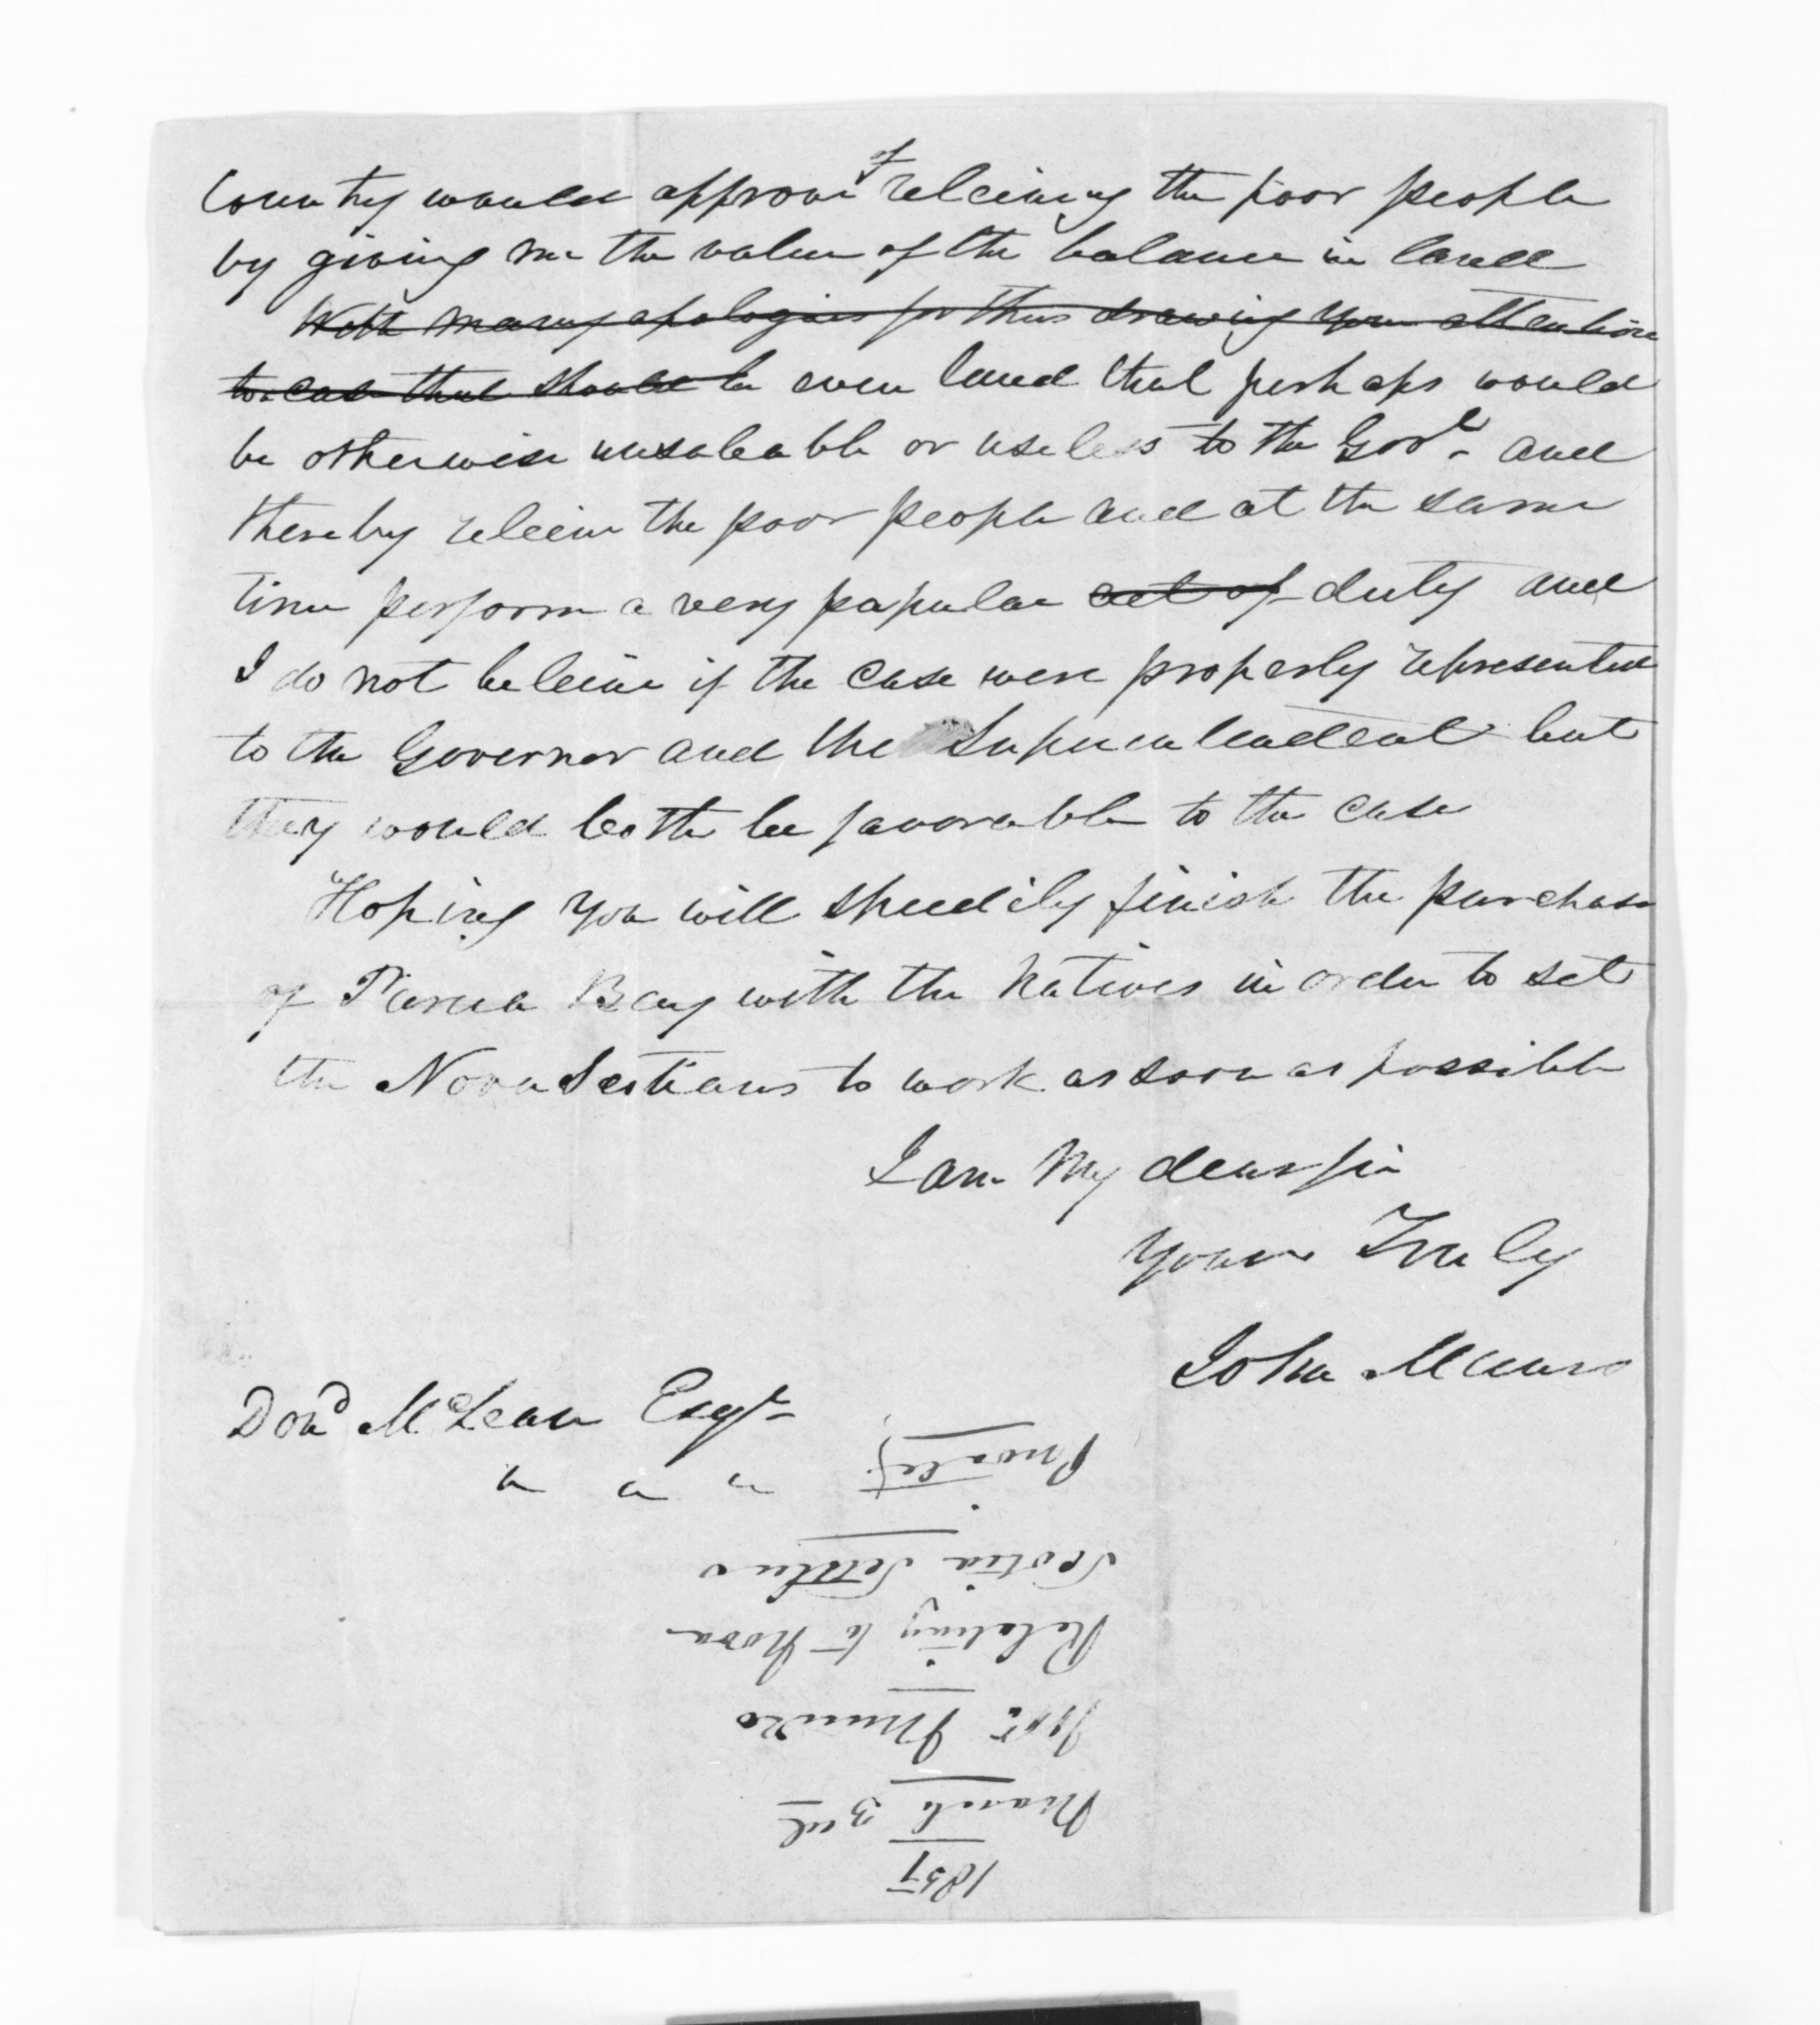 Country would approve of releiving the poor people
by giving me the value of the balance in land
With many apologies for thus drawing your attention
to a case that should be even land that perhaps would
be otherwise unsaleable or useless to the Govt. and
thereby releive the poor people and at the same
time perform a very popular act of duty and
I do not beleive if the case were properly represented
to the Governor and the Superintendent but
they would both be favorable to the case
Hoping you will speedily finish the purchase
of Parua Bay with the Natives in order to set
the Nova Scotians to work as soon as possible
I am My dear Sir
Yours Truly
John Munro
Dond McLean Esqr
" " "
1857
March 3rd
Jno. Munro
Relating to Nova
Scotia Settlers
Private